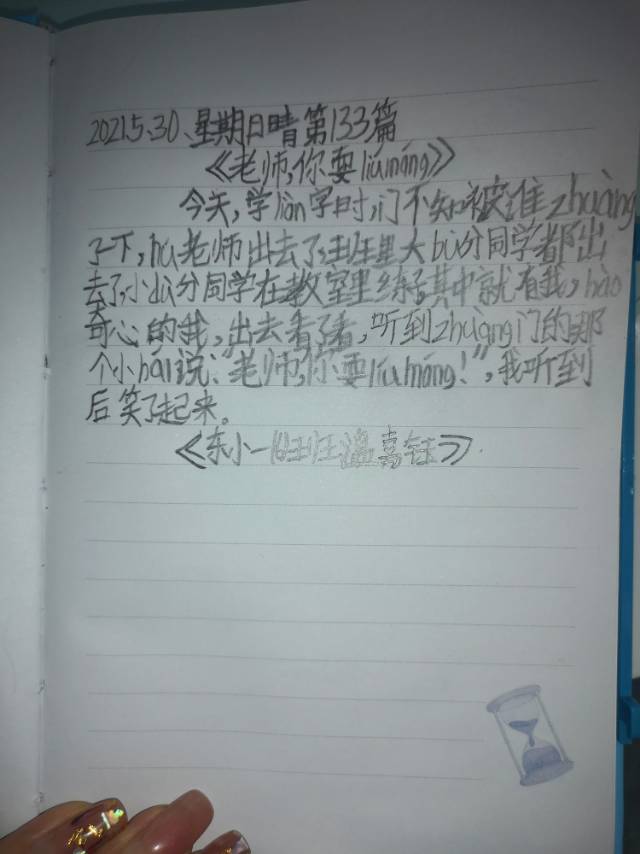 2021.5.30、星期日晴第133篇
《老师,你耍liúmáng》
今天,学liàn字时,门不知被谁zhuàng
了一下,hú老师出去了,班里大bù分同学都出
去了,小bù分同学在教室里练字,其中就有我,hào
奇心的我,出去看了看,听到zhuàng门的那
个小hái说:“老师,你耍liúmáng!”,我听到
后笑了起来。
《东小一(6)班温嘉钰》